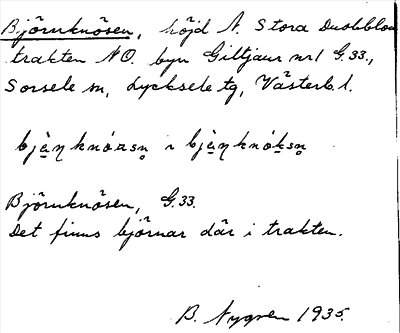 Björnknösen, höjd N. Stora Duobblon
trakten NO. byn Giltjaur nr1 G.33.,
Sorsele sn, Lycksele tg, Västerb. l.
bjä̀ŋ knóasn̥ i bjä̀ŋ knóksn̥
Björnknösen, G.33.
Det finns björnar där i trakten.
B. Nygren 1935.